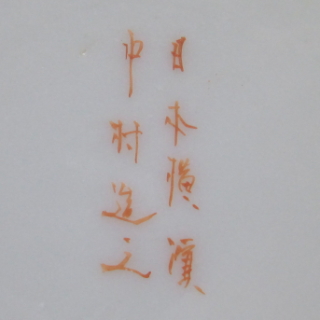 日本横濱
中村造之